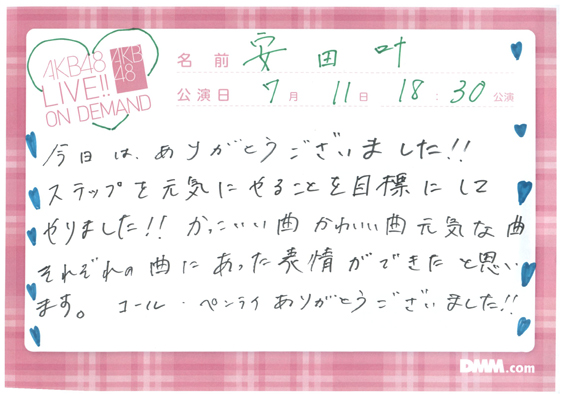 AKB48
LIVE!!
ON DEMAND
AKB
48
名前 安田叶
公演日 7月 11日 18:30公演
今日は、ありがとうございました!!
ステップを元気にやることを目標にして
やりました!! かっこいい曲かわいい曲元気な曲
それぞれの曲にあった表情ができたと思い
ます。 コール・ペンライありがとうございました!!
DMM.com